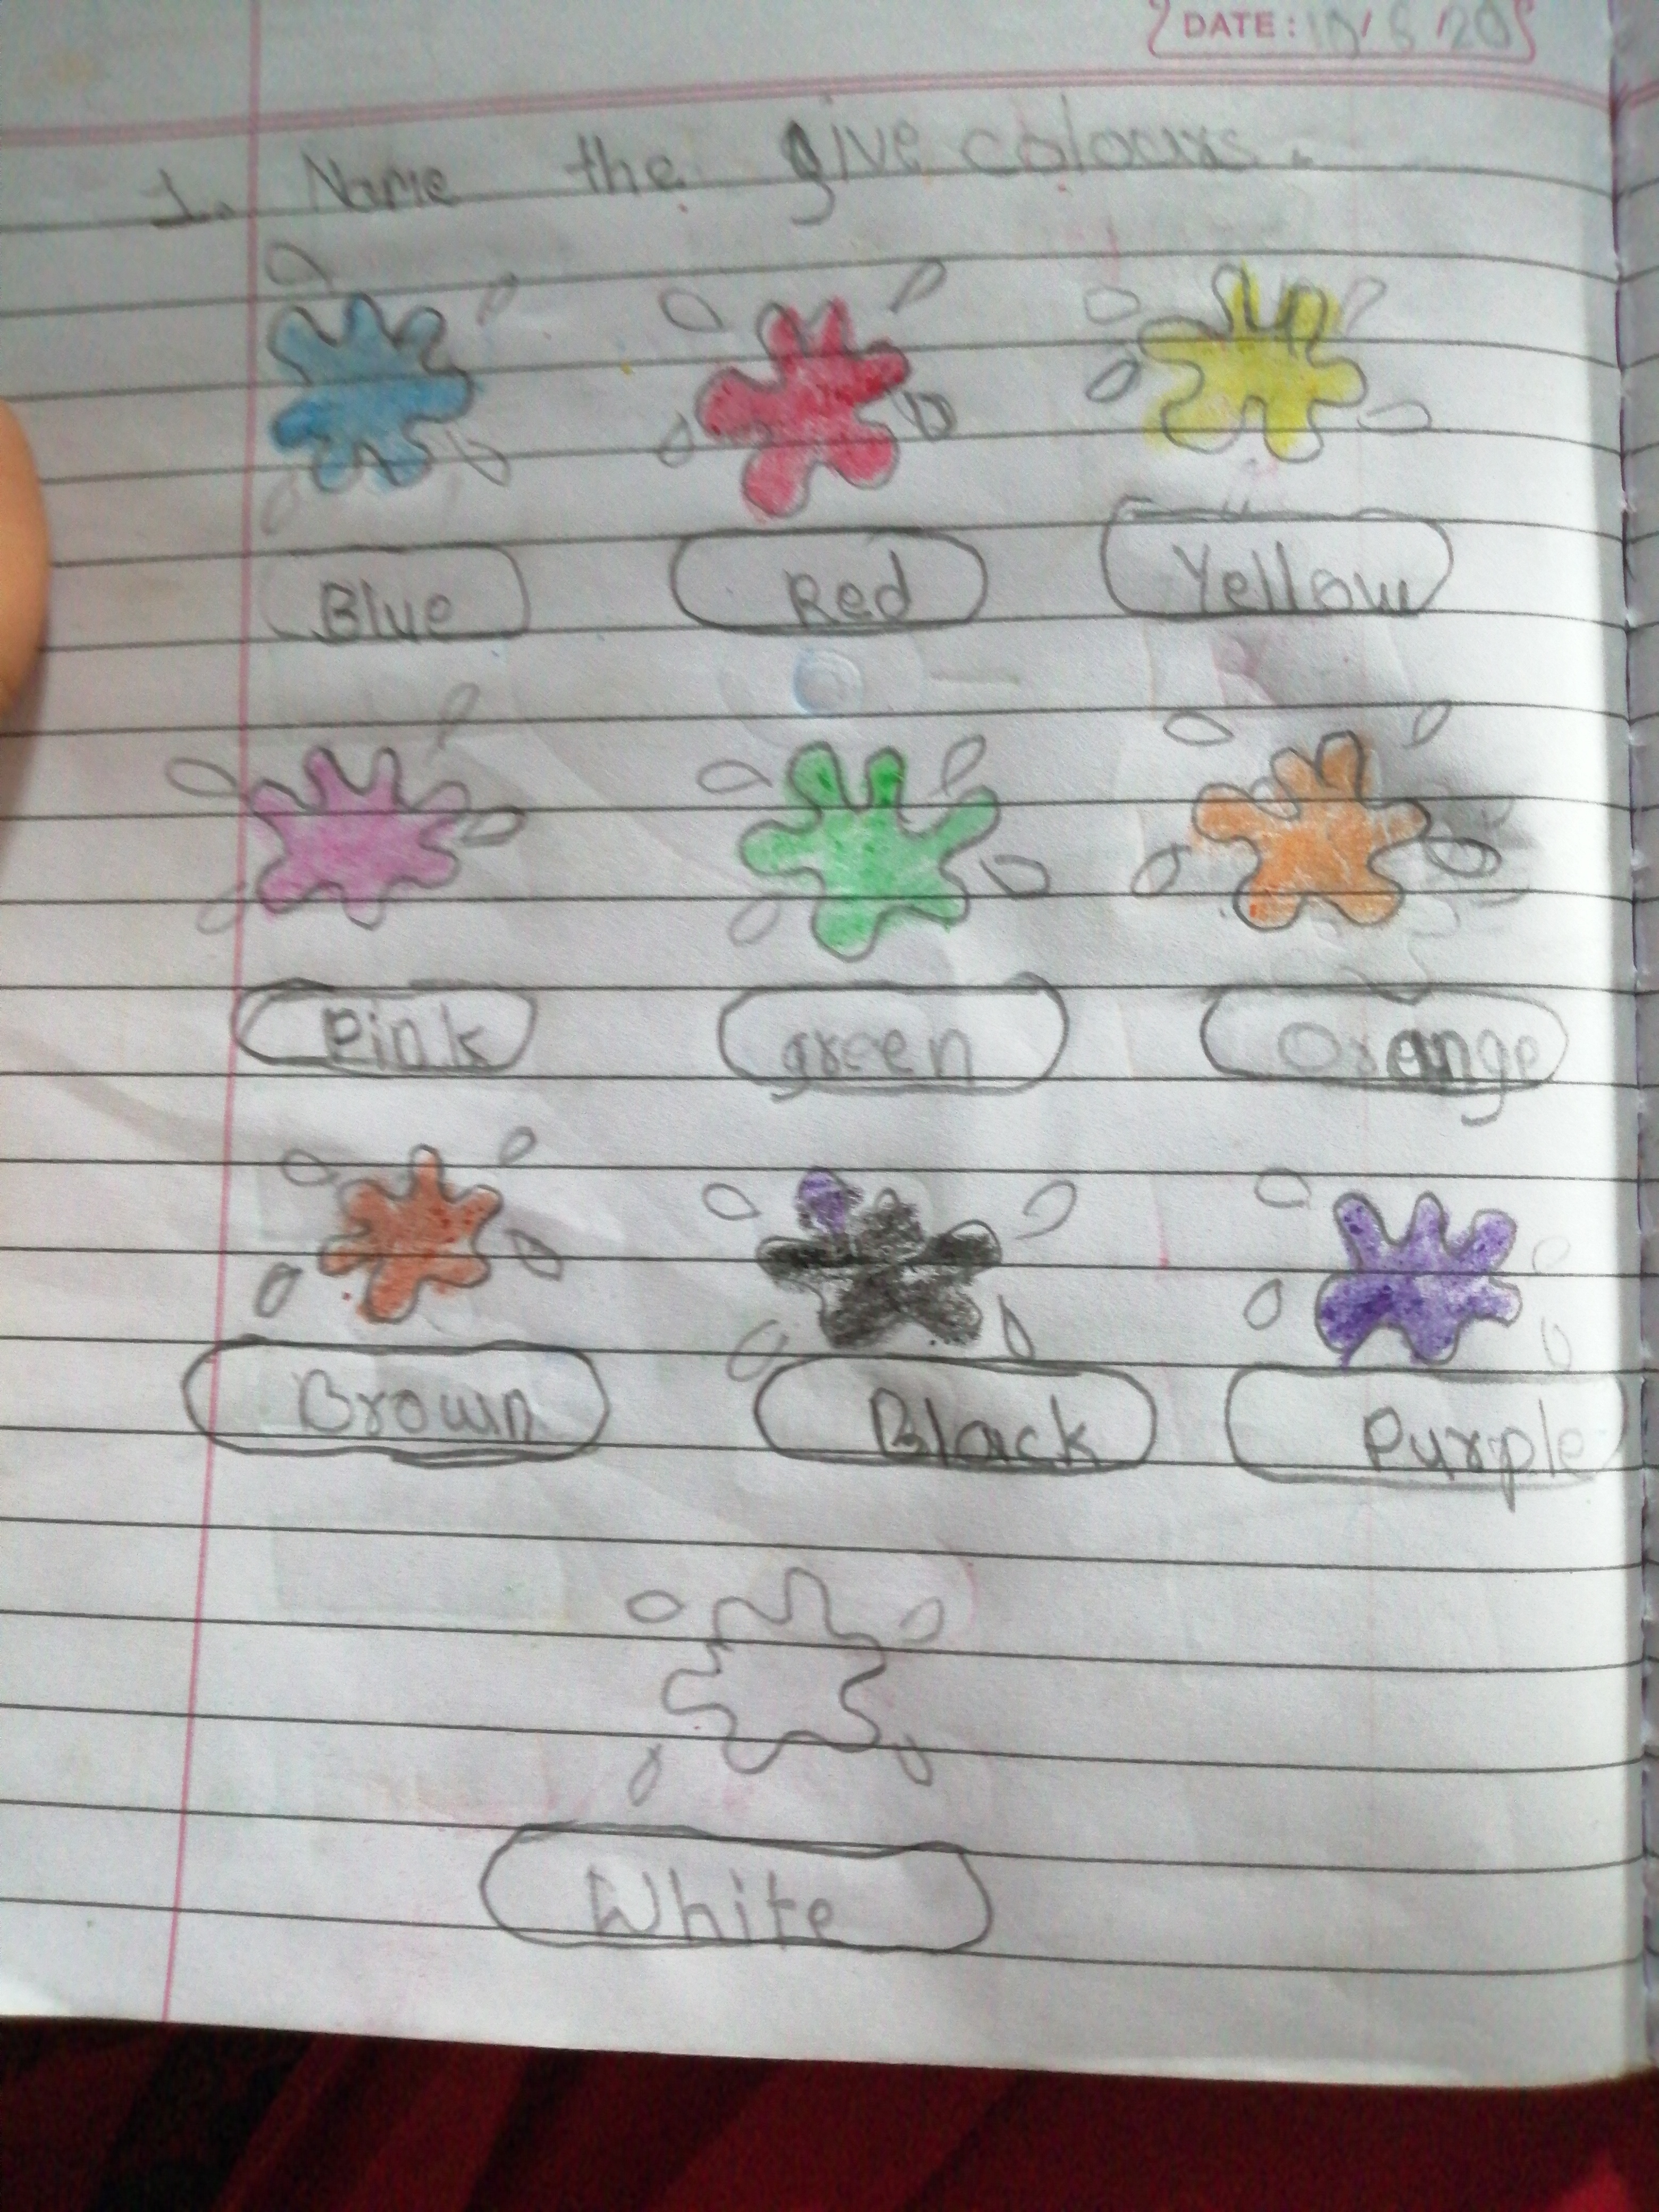 DATE: 10/8/20
1. Name the give colours.
Blue Red Yellow
Pink green Orange
Brown Black Purple
White